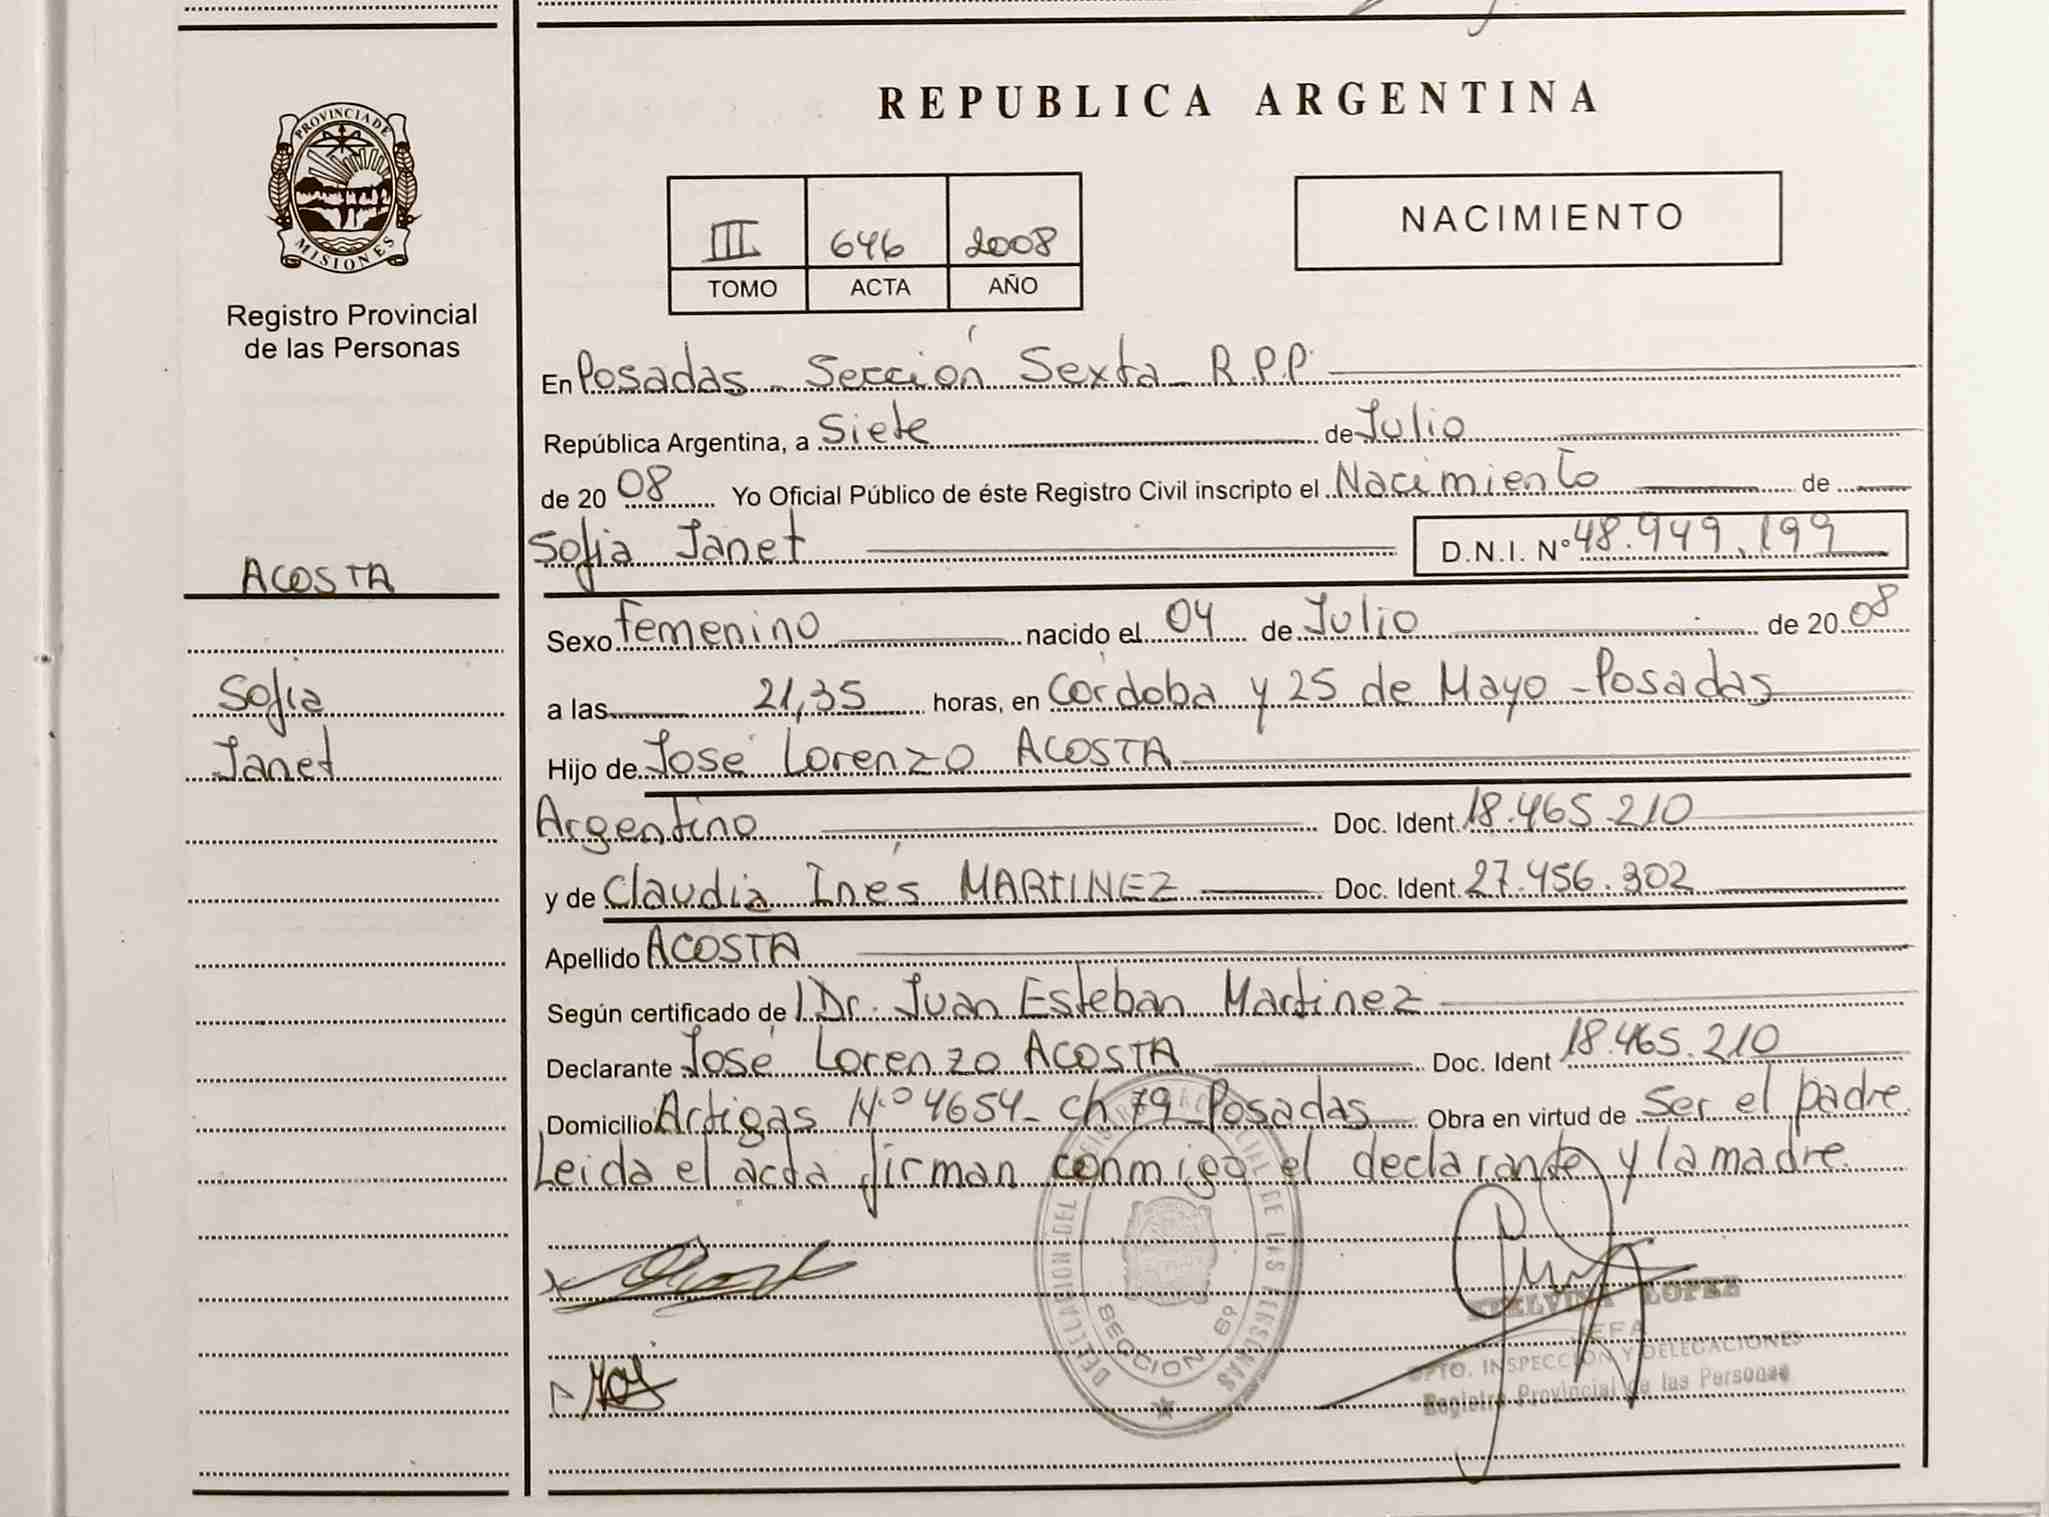 REPUBLICA ARGENTINA
PROVINCIA DE
MISIONES
Registro Provincial
de las Personas
III 646 2008
TOMO ACTA AÑO
NACIMIENTO
En Posadas - Sección Sexta - R.P.P.
República Argentina, a Siete de Julio
de 2008 Yo Oficial Público de éste Registro Civil inscripto el Nacimiento de
Sofia Janet D.N.I. Nº 48.949.199
ACOSTA
Sofia
Janet
Sexo femenino nacido el 04 de Julio de 2008
a las 21,35 horas, en Córdoba y 25 de Mayo - Posadas
Hijo de José Lorenzo ACOSTA
Argentino Doc. Ident. 18.465.210
y de Claudia Inés MARTINEZ Doc. Ident. 27.456.302
Apellido ACOSTA
Según certificado de l Dr. Juan Esteban Martinez
Declarante José Lorenzo ACOSTA Doc. Ident 18.465.210
Domicilio Artigas N.º 4654 - Ch 79 - Posadas Obra en virtud de Ser el padre.
Leida el acta firman conmigo el declarante y la madre.
DELEGACION DEL REGISTRO PROVINCIAL DE LAS PERSONAS
SECCION 6º
LOPEZ
JEFA
DPTO. INSPECCION Y DELEGACIONES
Registro Provincial de las Personas